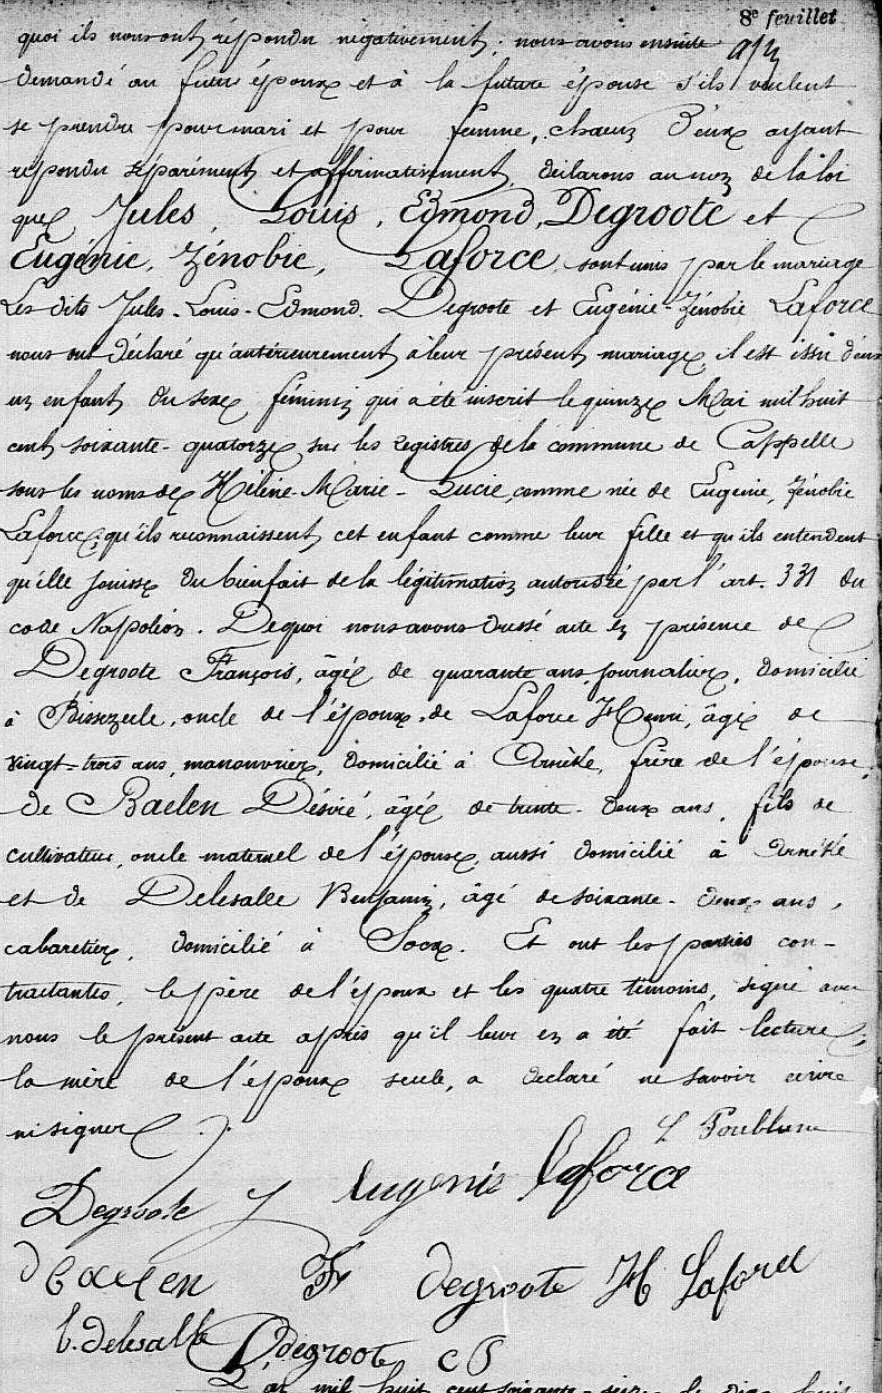 8e feuillet
quoi ils nous ont répondu négativement ; nous avons ensuite
demandé au futur époux et à la future épouse s'ils veulent
se prendre pour mari et pour femme, chacun d'eux ayant
répondu séparément et affirmativement, déclarons au nom de la loi
que Jules, Louis, Edmond, Degroote et
Eugénie, Zénobie, Laforce, sont unis par le mariage
Les dits Jules-Louis-Edmond Degroote et Eugénie-Zénobie Laforce
nous ont déclaré qu'antérieurement à leur présent mariage, il est issu d'eux
un enfant du sexe féminin qui a été inscrit le quinze Mai mil huit
cent soixante-quatorze, sur les registres de la commune de Cappelle
sous les noms de Hélène-Marie-Lucie, comme née de Eugénie, Zénobie
Laforce, qu'ils reconnaissent cet enfant comme leur fille et qu'ils entendent
qu'elle jouisse du bienfait de la légitimation autorisée par l'art. 331 du
code Napoléon. De quoi nous avons dressé acte en présence de
Degroote François, âgé de quarante ans, journalier, domicilié
à Bissezeele, oncle de l'époux, de Laforce Henri, âgé de
vingt-trois ans, manouvrier, domicilié à Arnèke, frère de l'épouse,
de Baelen Désiré, âgé de trente-deux ans, fils de
cultivateur, oncle maternel de l'épouse, aussi domicilié à Arnèke
et de Delesalle Benjamin, âgé de soixante-deux ans,
cabaretier, domicilié à Socx. Et ont les parties con-
tractantes, le père de l'époux et les quatre témoins, signé avec
nous le présent acte après qu'il leur en a été fait lecture ;
la mère de l'époux seule, a déclaré ne savoir écrire
ni signer.
Degroote J Eugenie Laforce
d baelen Fr degroote H Laforce
b. delesalle D degroote c b
L'an mil huit cent soixante-seize le dix-huit